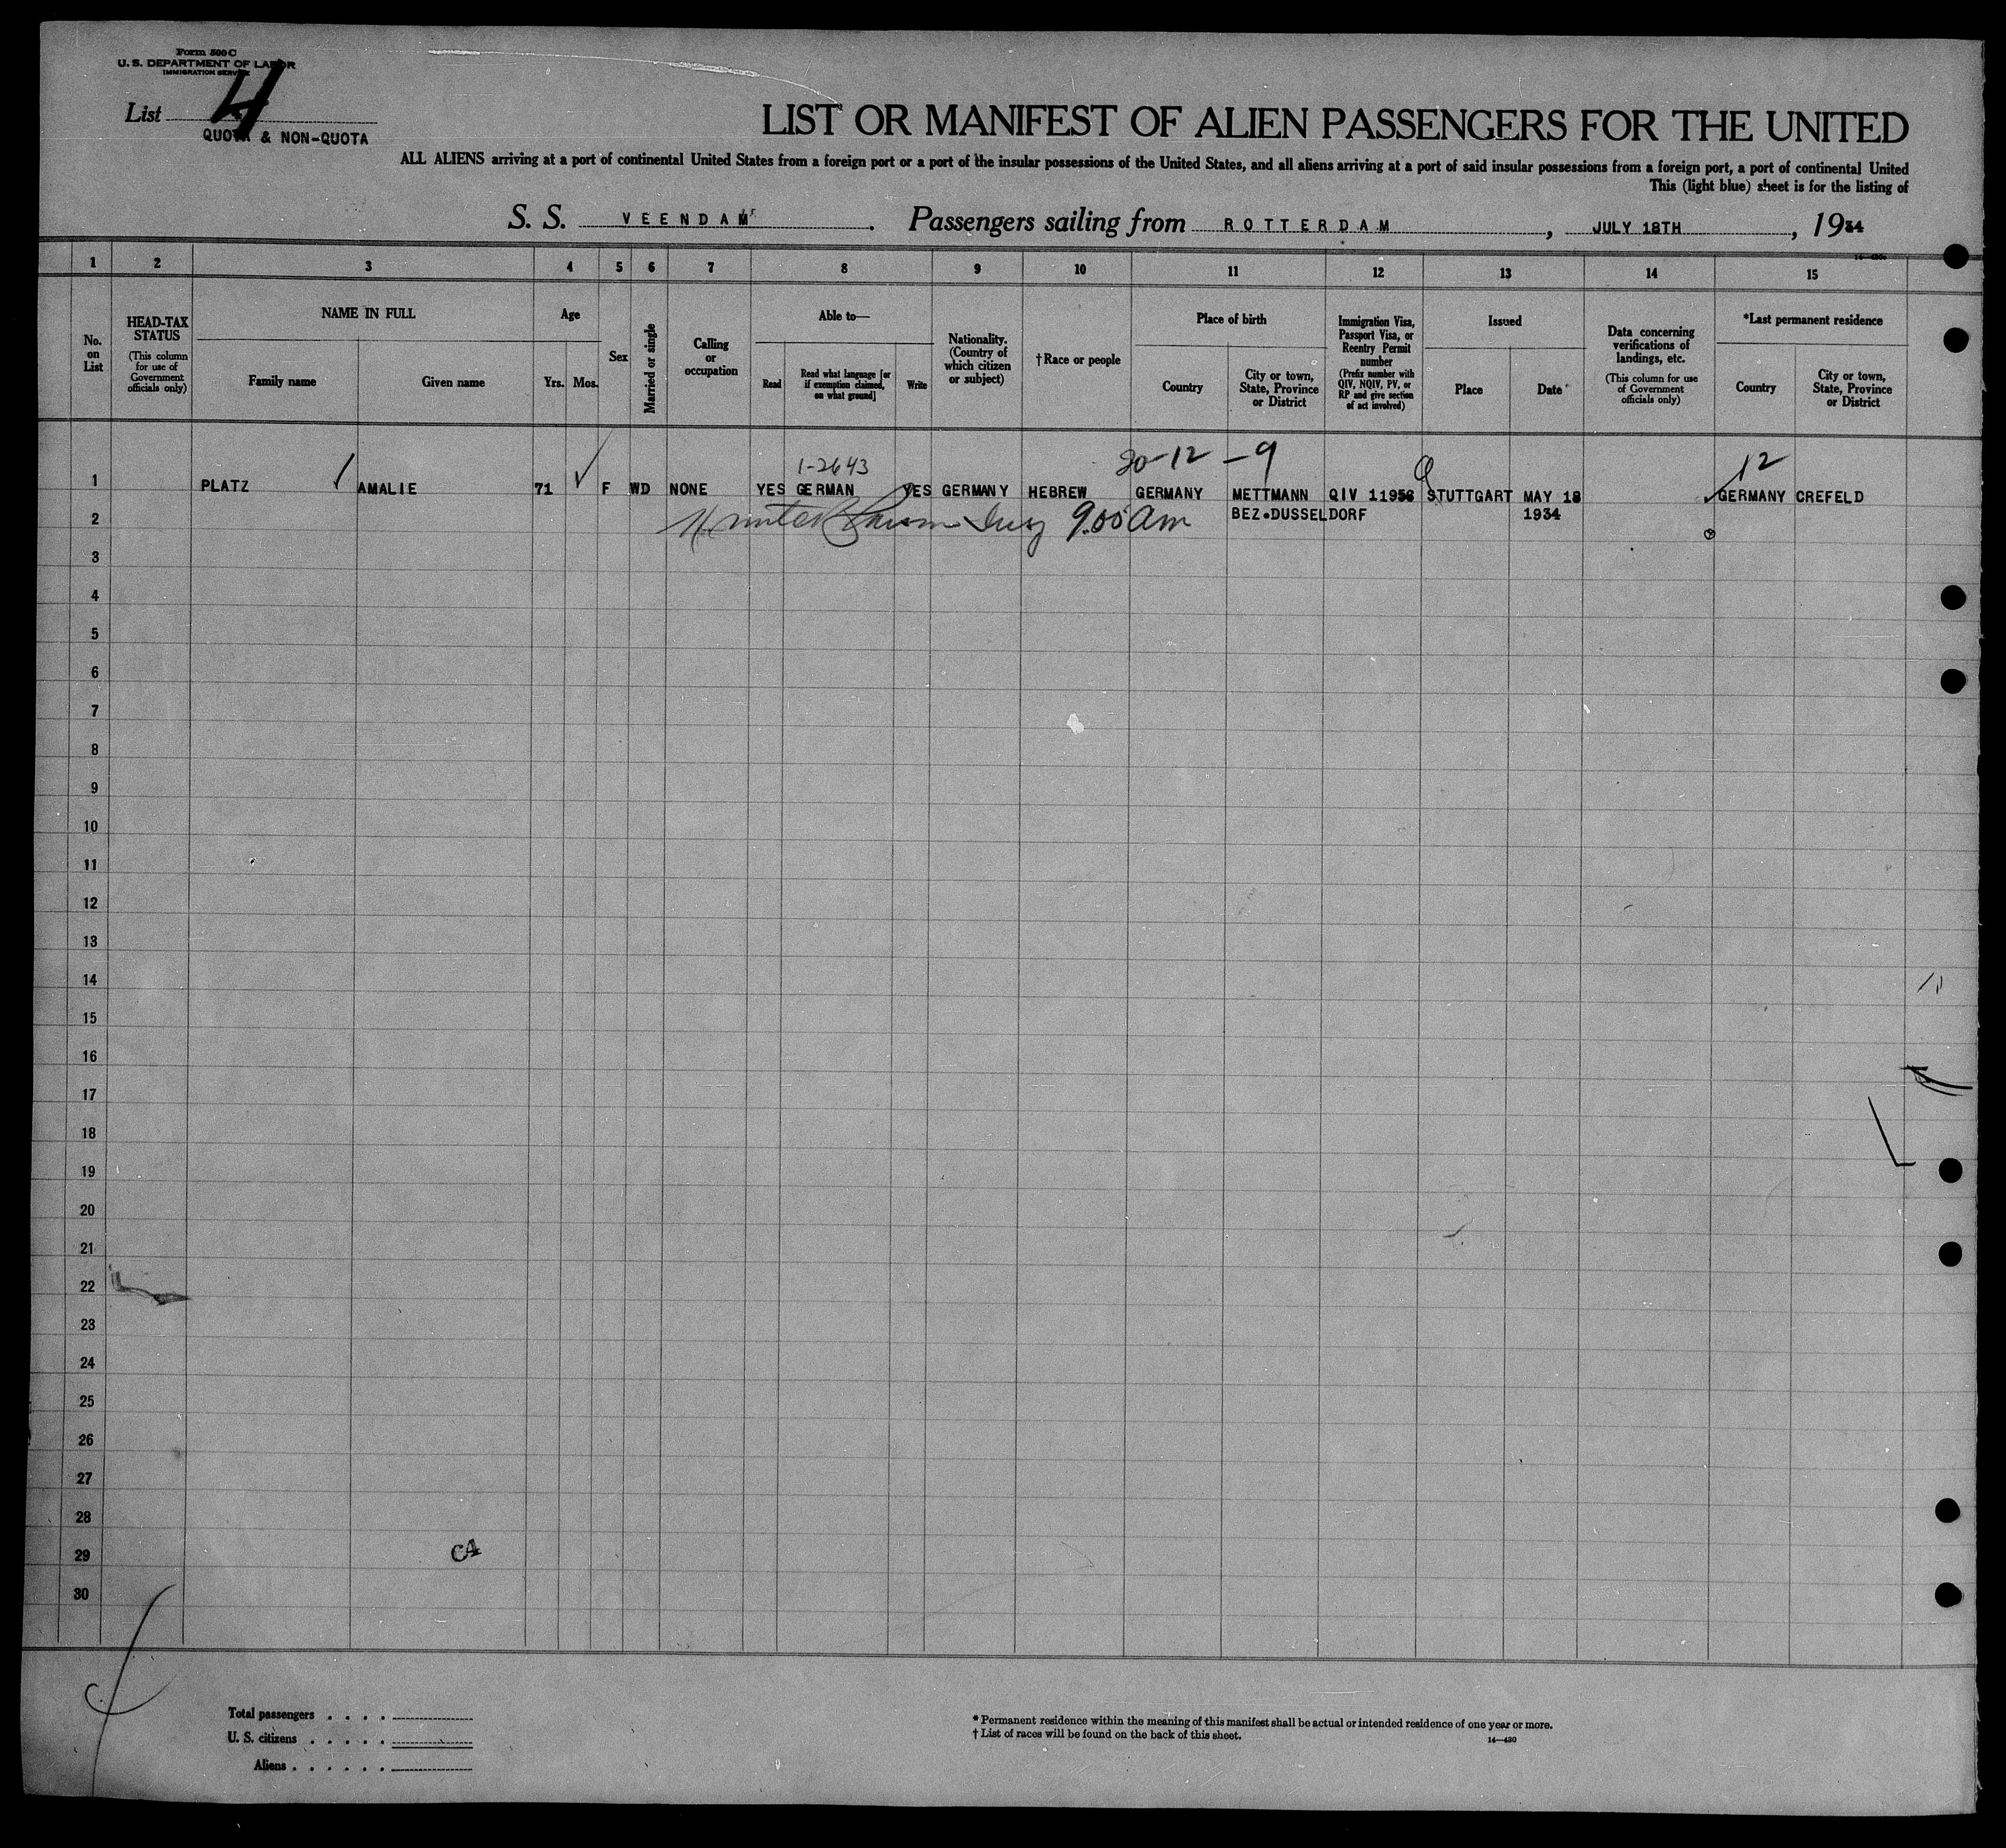 Form 500 C
U. S. DEPARTMENT OF LABOR
IMMIGRATION SERVICE
List 4
QUOTA & NON-QUOTA
LIST OR MANIFEST OF ALIEN PASSENGERS FOR THE UNITED
ALL ALIENS arriving at a port of continental United States from a foreign port or a port of the insular possessions of the United States, and all aliens arriving at a port of said insular possessions from a foreign port, a port of continental United
This (light blue) sheet is for the listing of
S. S. VEENDAM. Passengers sailing from ROTTERDAM, JULY 18TH, 1934
1 2 3 4 5 6 7 8 9 10 11 12 13 14 15
No. on List
HEAD-TAX STATUS
(This column for use of Government officials only)
NAME IN FULL
Family name
Given name
Age
Yrs. Mos.
Sex
Married or single
Calling or occupation
Able to—
Read
Read what language [or if exemption claimed, on what ground]
Write
Nationality. (Country of which citizen or subject)
†Race or people
Place of birth
Country
City or town, State, Province or District
Immigration Visa, Passport Visa, or Reentry Permit number
(Prefix number with QIV, NQIV, PV, or RP and give section of act involved)
Issued
Place
Date
Data concerning verifications of landings, etc.
(This column for use of Government officials only)
*Last permanent residence
Country
City or town, State, Province or District
1-2643 20-12-9 12
1 PLATZ AMALIE 71 F WD NONE YES GERMAN YES GERMANY HEBREW GERMANY METTMANN QIV 11956 STUTTGART MAY 18 GERMANY CREFELD
2 9.05 am BEZ.DUSSELDORF 1934
3
4
5
6
7
8
9
10
11
12
13
14
15
16
17
18
19
20
21
22
23
24
25
26
27
28
29 CA
30
Total passengers . . . .
U. S. citizens . . . . .
Aliens . . . . . .
* Permanent residence within the meaning of this manifest shall be actual or intended residence of one year or more.
† List of races will be found on the back of this sheet.
14—430